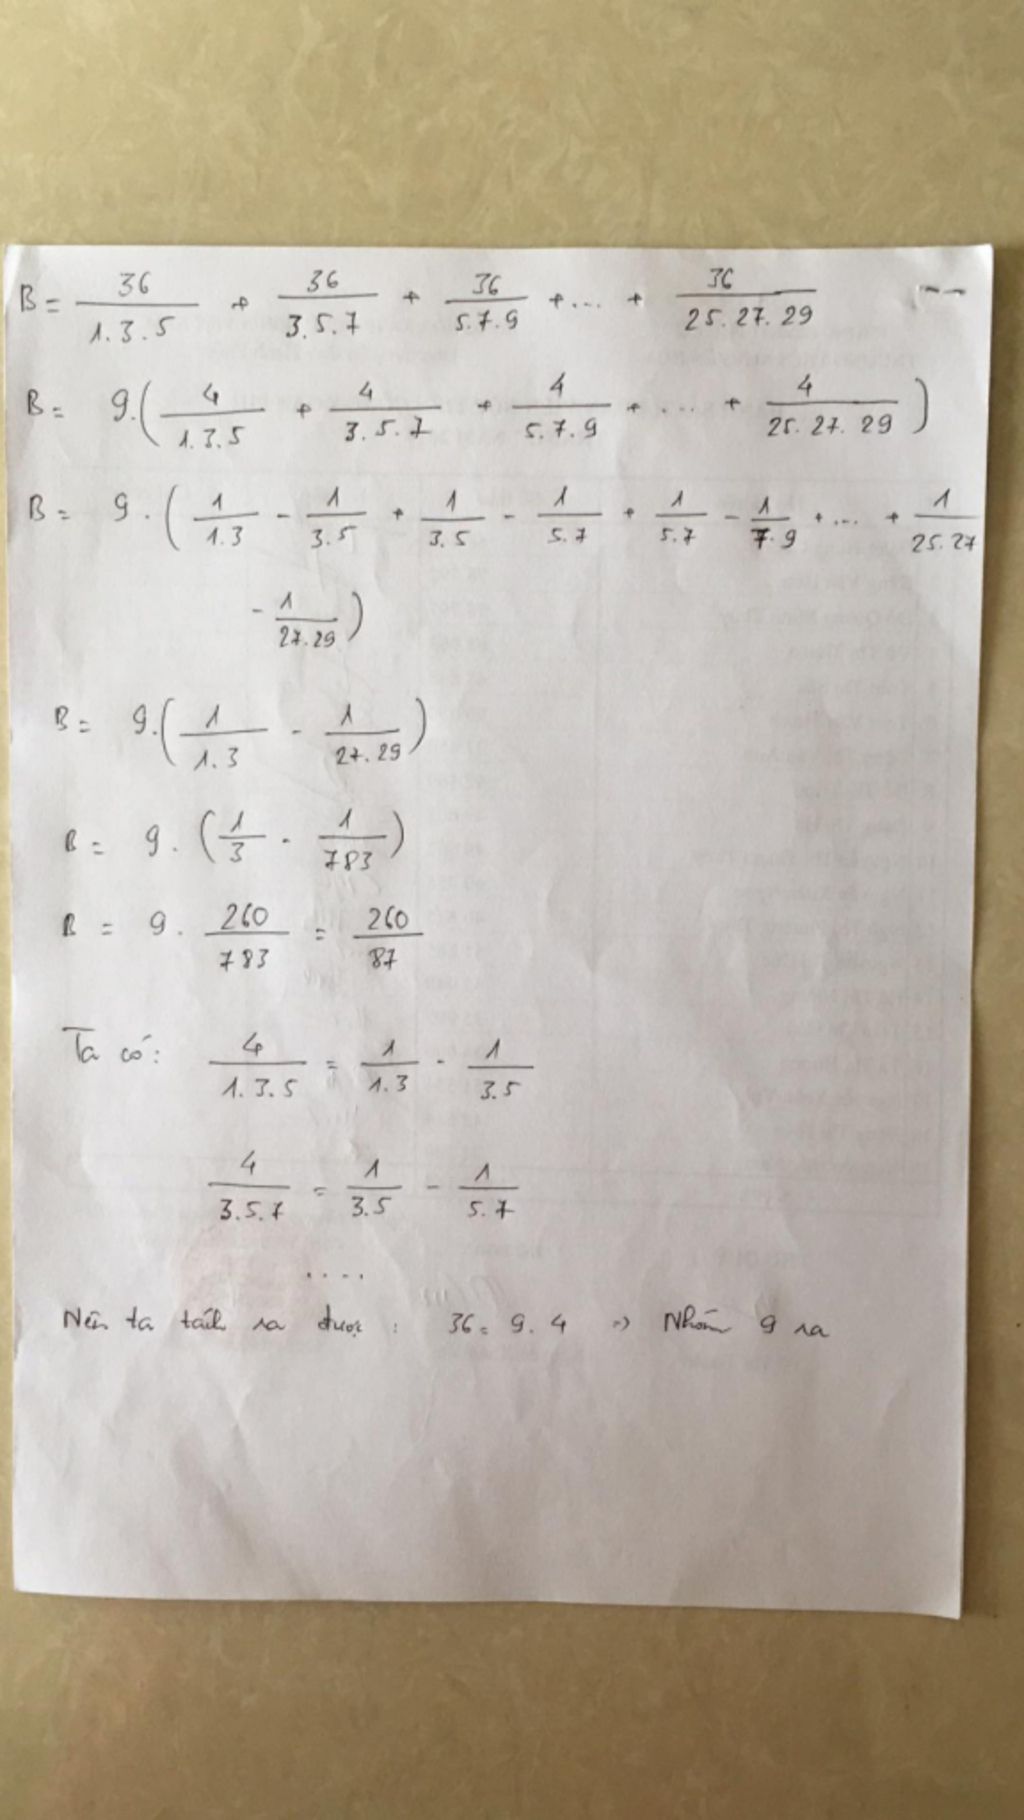 B = 36/1.3.5 + 36/3.5.7 + 36/5.7.9 + ... + 36/25.27.29
B = 9.(4/1.3.5 + 4/3.5.7 + 4/5.7.9 + ... + 4/25.27.29)
B = 9.(1/1.3 - 1/3.5 + 1/3.5 - 1/5.7 + 1/5.7 - 1/7.9 + ... + 1/25.27
- 1/27.29)
B = 9.(1/1.3 - 1/27.29)
B = 9.(1/3 - 1/783)
B = 9. 260/783 = 260/87
Ta có: 4/1.3.5 = 1/1.3 - 1/3.5
4/3.5.7 = 1/3.5 - 1/5.7
....
Nên ta tách ra được : 36 = 9.4 => Nhóm 9 ra